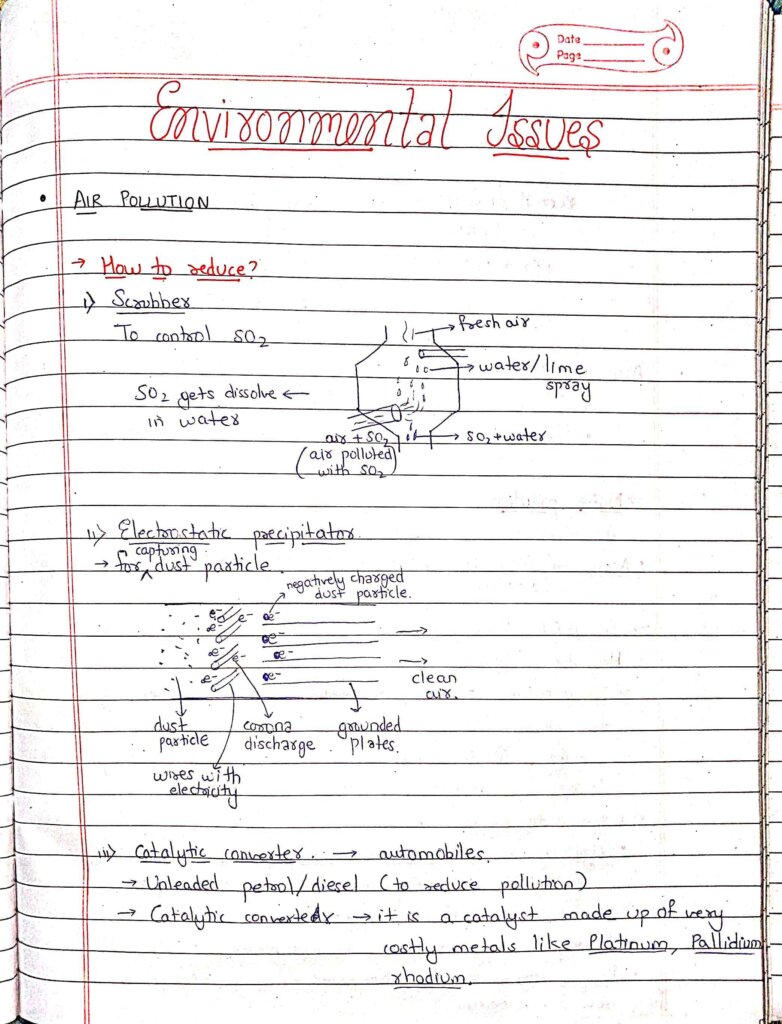 Date
Page
Environmental Issues
• AIR POLLUTION
→ How to reduce?
i) Scrubber
To control SO2
→ fresh air
→ water/lime
spray
SO2 gets dissolve ←
in water
air + SO2
(air polluted
with SO2)
→ SO2 + water
ii) Electrostatic precipitator
capturing
→ for ^ dust particle
negatively charged
dust particle.
e- e- e-
e- e-
e- e- e-
e- e-
→
→
clean
air.
dust
particle
corona
discharge
grounded
plates.
wires with
electricity
iii) Catalytic converter. → automobiles.
→ Unleaded petrol/diesel (to reduce pollution)
→ Catalytic converter → it is a catalyst made up of very
costly metals like Platinum, Pallidium
rhodium.